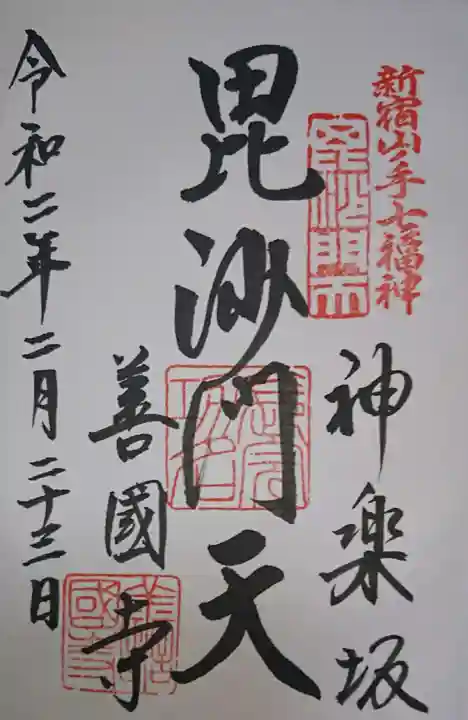 新宿山ノ手七福神
神楽坂
毘沙門天
善國寺
令和二年二月二十三日